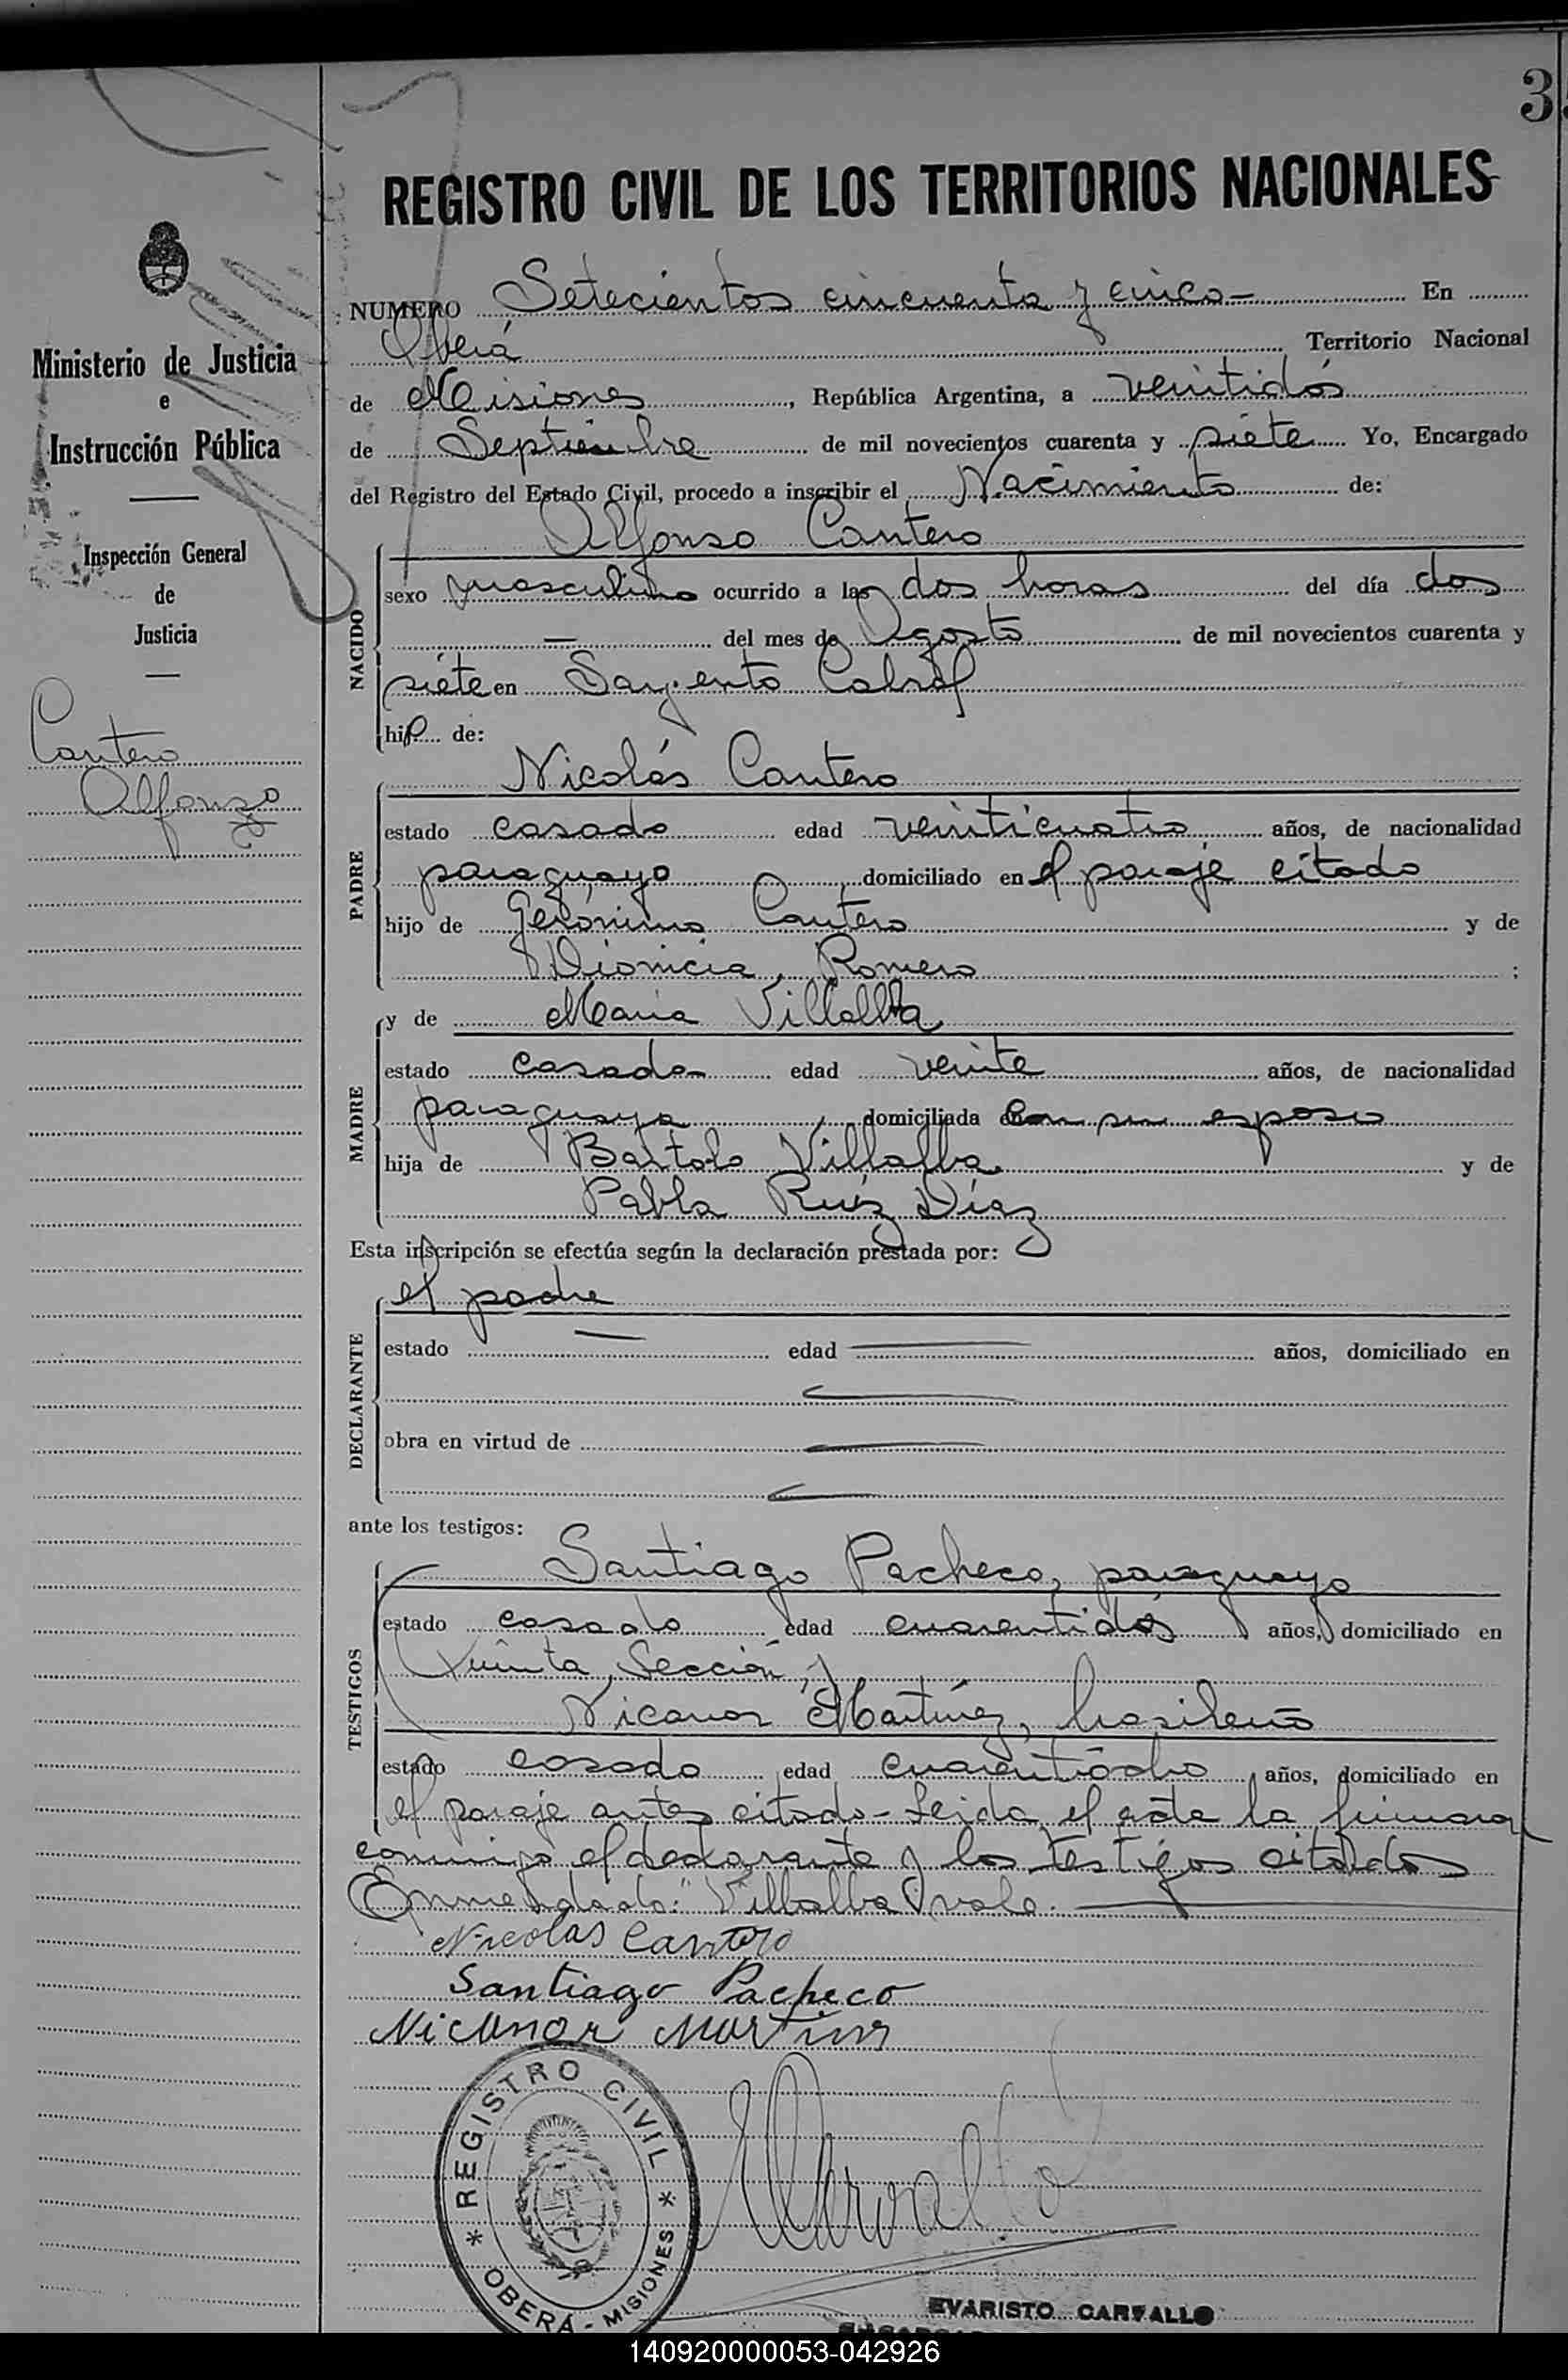 3
REGISTRO CIVIL DE LOS TERRITORIOS NACIONALES
Ministerio de Justicia
e
Instrucción Pública
Inspección General
de
Justicia
Cantero
Alfonso
NUMERO Setecientos cincuenta y cinco- En
Oberá Territorio Nacional
de Misiones, República Argentina, a veintidós
de Septiembre de mil novecientos cuarenta y siete Yo, Encargado
del Registro del Estado Civil, procedo a inscribir el Nacimiento de:
NACIDO
Alfonso Cantero
sexo masculino ocurrido a las dos horas del día dos
— del mes de Agosto de mil novecientos cuarenta y
siete en Sargento Cabral
hijo de:
PADRE
Nicolás Cantero
estado casado edad veinticuatro años, de nacionalidad
paraguayo, domiciliado en el paraje citado
hijo de Gerónimo Cantero y de
Dionicia Romero ;
MADRE
y de Maria Villalba
estado casada edad veinte años, de nacionalidad
paraguaya, domiciliada con su esposo
hija de Bartolo Villalba y de
Pabla Ruíz Díaz
Esta inscripción se efectúa según la declaración prestada por:
DECLARANTE
el padre
estado — edad — años, domiciliado en
—
obra en virtud de —
—
ante los testigos:
TESTIGOS
Santiago Pacheco, paraguayo
estado casado edad cuarentidós años, domiciliado en
Quinta Sección, y
Nicanor Martínez, brasileño
estado casado edad cuarentiocho años, domiciliado en
el paraje antes citado- Leida el acta la firman
conmigo el declarante y los testigos citados
Enmendado: "Villalba" vale. —
Nicolas Cantero
Santiago Pacheco
Nicanor
REGISTRO CIVIL
* OBERÁ - MISIONES *
EVARISTO CARVALLO
140920000053-042926